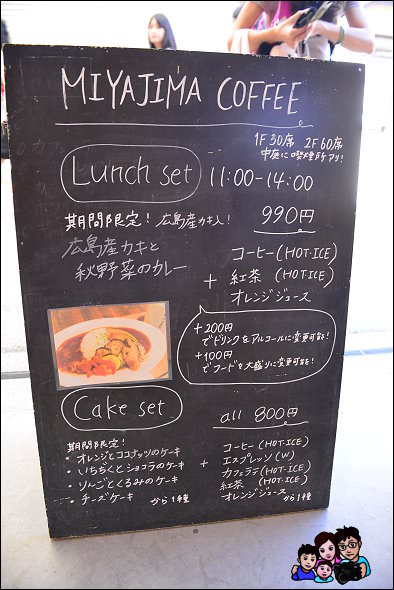 MIYAJIMA COFFEE
1F 30席 2F 60席
中庭に喫煙所アリ!
Lunch set 11:00-14:00
期間限定! 広島産カキ入! 990円
広島産カキと
秋野菜のカレー
+
コーヒー(HOT・ICE)
紅茶 (HOT・ICE)
オレンジジュース
+200円
でドリンクをアルコールに変更可能!
+100円
でフードを大盛りに変更可能!
Cake set all 800円
期間限定!
・オレンジとココナッツのケーキ
・いちぢくとショコラのケーキ
・りんごとくるみのケーキ
・チーズケーキ から1種
+
コーヒー(HOT・ICE)
エスプレッソ(W)
カフェラテ(HOT・ICE)
紅茶 (HOT・ICE)
オレンジジュース から1種